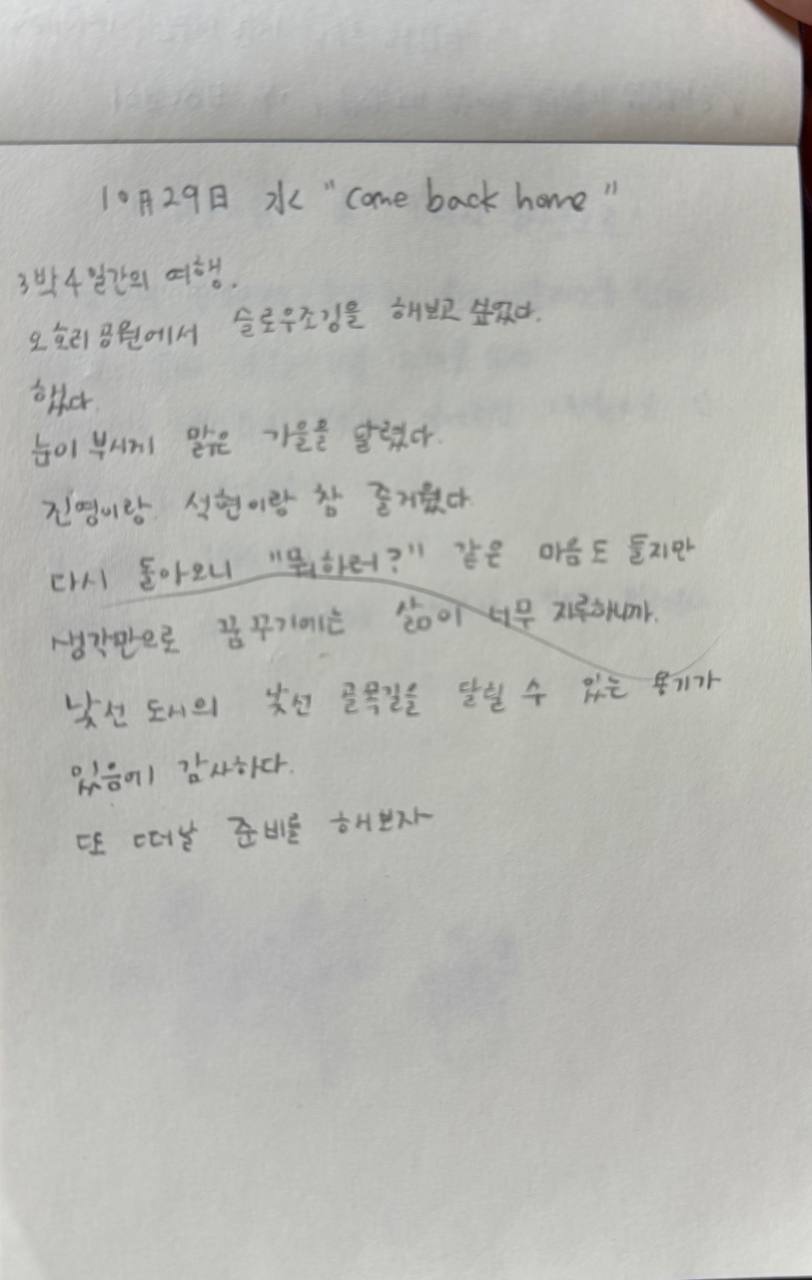 10月29日 水 "Come back home"
3박4일간의 여행.
오호리공원에서 슬로우조깅을 해보고 싶었다.
했다.
눈이 부시게 맑은 가을을 달렸다.
진영이랑 석현이랑 참 즐거웠다
다시 돌아오니 "뭐하러?" 같은 마음도 들지만
생각만으로 꿈꾸기에는 삶이 너무 지루하니까.
낯선 도시의 낯선 골목길을 달릴 수 있는 용기가
있음에 감사하다.
또 떠날 준비를 해보자